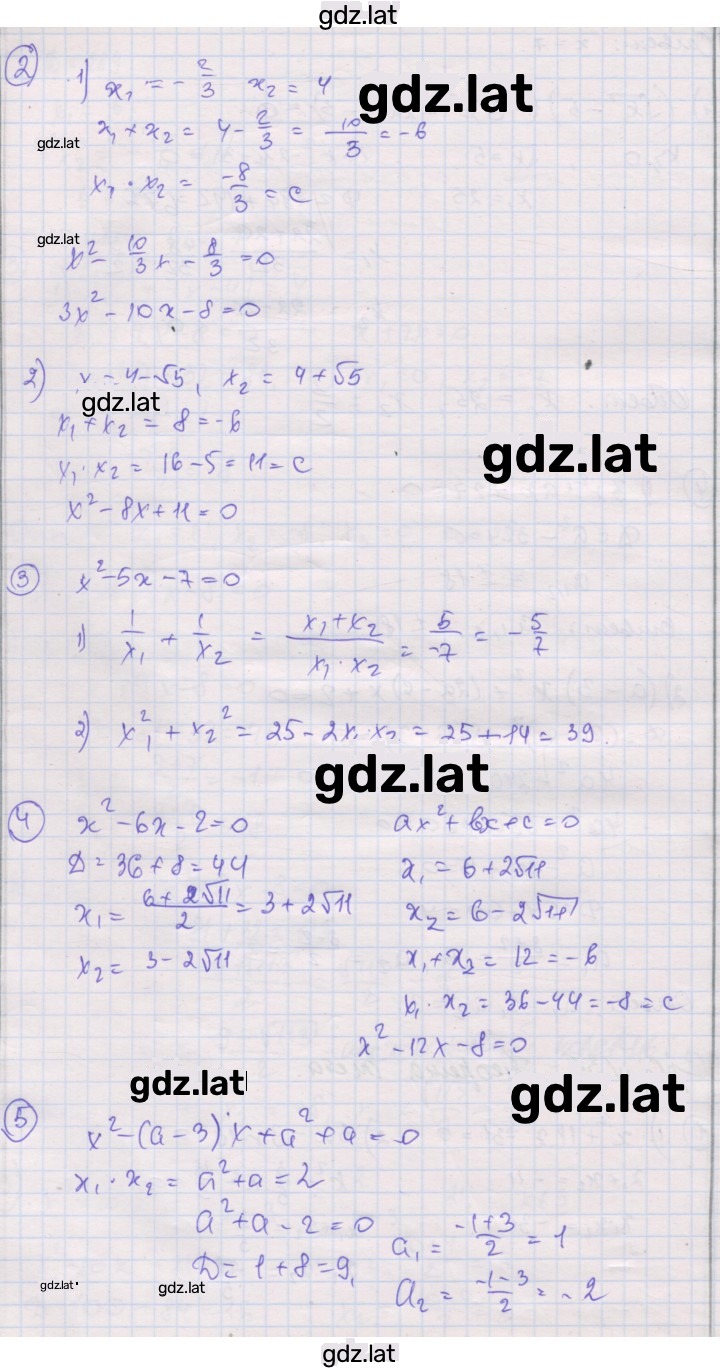 gdz.lat
2) 1) x₁ = -2/3 x₂ = 4
gdz.lat
x₁ + x₂ = 4 - 2/3 = 10/3 = -b
gdz.lat
x₁ · x₂ = -8/3 = c
gdz.lat
x² - 10/3 x - 8/3 = 0
3x² - 10x - 8 = 0
2) x = 4-√5, x₂ = 4+√5
gdz.lat
x₁ + x₂ = 8 = -b
gdz.lat
x₁ · x₂ = 16-5 = 11 = c
x² - 8x + 11 = 0
3) x² - 5x - 7 = 0
1) 1/x₁ + 1/x₂ = (x₁+x₂)/(x₁·x₂) = 5/-7 = -5/7
2) x₁² + x₂² = 25 - 2x₁x₂ = 25+14 = 39.
gdz.lat
4) x² - 6x - 2 = 0 ax² + bx + c = 0
D = 36 + 8 = 44 x₁ = 6+2√11
x₁ = (6+2√11)/2 = 3+2√11 x₂ = 6-2√11
x₂ = 3-2√11 x₁+x₂ = 12 = -b
x₁ · x₂ = 36-44 = -8 = c
x² - 12x - 8 = 0
gdz.lat
gdz.lat
5) x² - (a-3)x + a² + a = 0
x₁ · x₂ = a² + a = 2
a² + a - 2 = 0 a₁ = (-1+3)/2 = 1
D = 1+8 = 9, a₂ = (-1-3)/2 = -2
gdz.lat
gdz.lat
gdz.lat